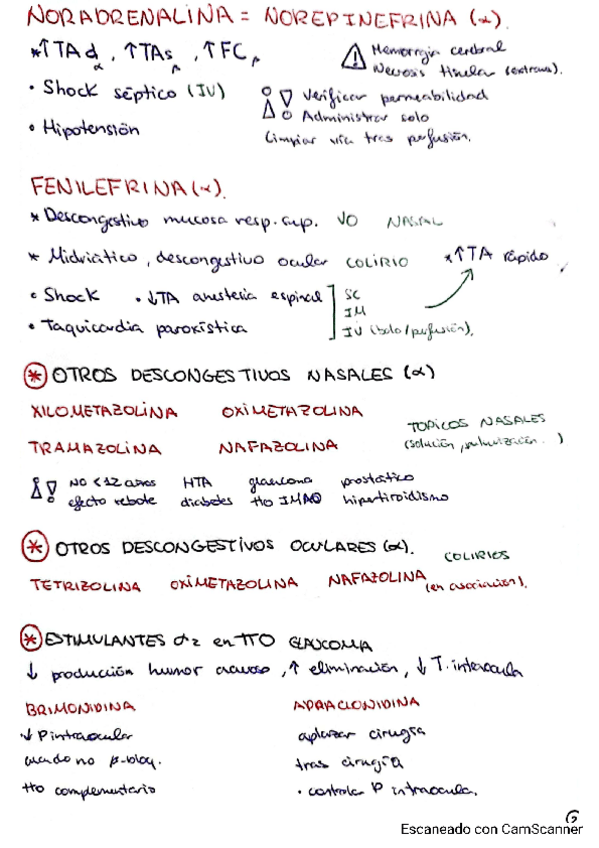 NORADRENALINA = NOREPINEFRINA (α).
*↑TAd α, ↑TAs β, ↑FC β
⚠ Hemorragia cerebral
Necrosis tisular (extravas).
• Shock séptico (IV)
Verificar permeabilidad
Administrar solo
• Hipotensión
Limpiar vía tras perfusión.
FENILEFRINA (α).
* Descongestivo mucosa resp. sup. VO NASAL
* Midriático, descongestivo ocular COLIRIO
*↑TA rápido
• Shock • ↓TA anestesia espinal
SC
IM
IV (bolo/perfusión).
• Taquicardia paroxística
* OTROS DESCONGESTIVOS NASALES (α)
XILOMETAZOLINA OXIMETAZOLINA
TRAMAZOLINA NAFAZOLINA
TOPICOS NASALES
(solución, pulverización. )
NO < 12 años HTA glaucoma prostático
efecto rebote diabetes tto IMAO hipertiroidismo
* OTROS DESCONGESTIVOS OCULARES (α).
COLIRIOS
TETRIZOLINA OXIMETAZOLINA NAFAZOLINA (en asociación).
* ESTIMULANTES α2 en TTO GLAUCOMA
↓ producción humor acuoso, ↑ eliminación, ↓ T. intraocula
BRIMONIDINA APRACLONIDINA
↓ P intraocular aplazar cirugía
cuando no β-bloq. tras cirugía
tto complementario • controlar P intraocula.
6
Escaneado con CamScanner